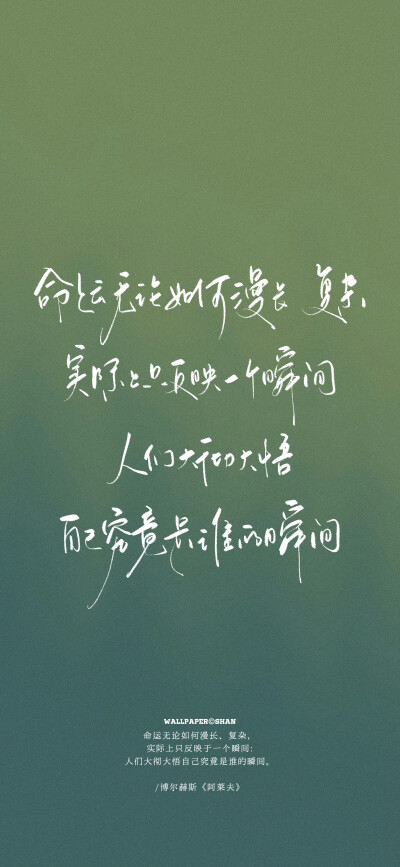 命运无论如何漫长 复杂
实际上只反映一个瞬间
人们大彻大悟
自己究竟是谁的瞬间
WALLPAPER©SHAN
命运无论如何漫长、复杂，
实际上只反映于一个瞬间：
人们大彻大悟自己究竟是谁的瞬间。
/博尔赫斯《阿莱夫》